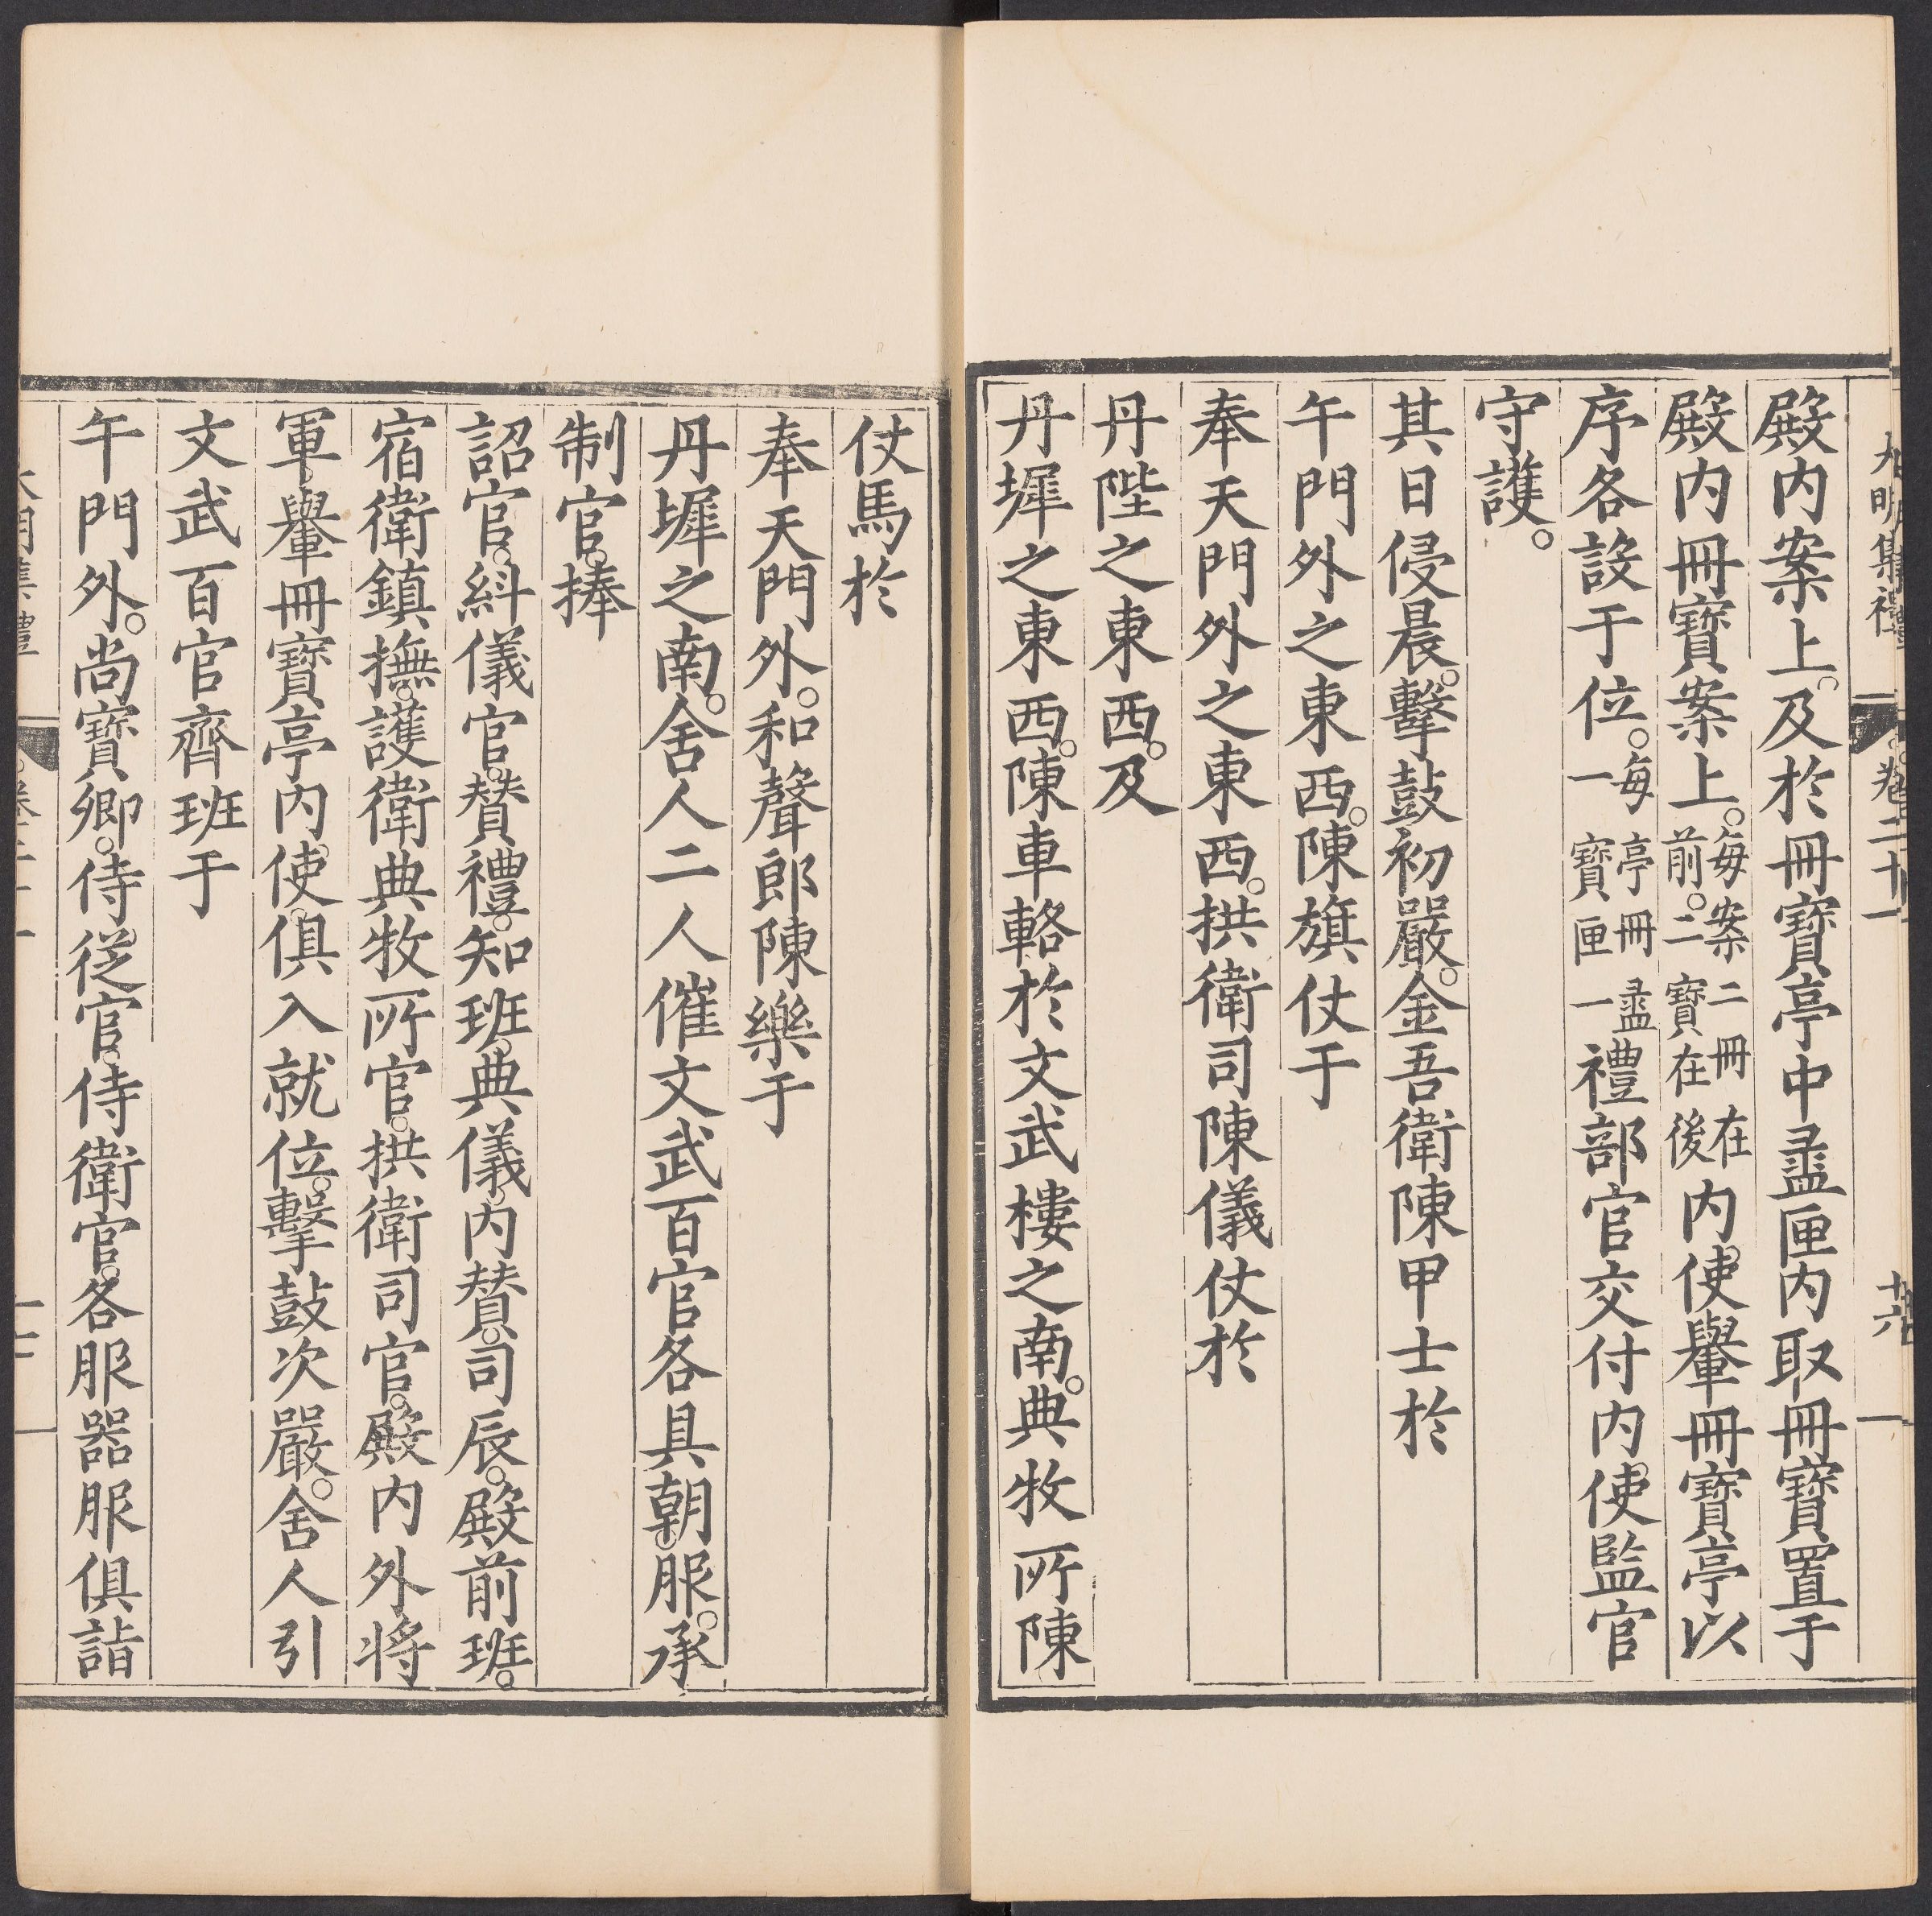 大明集禮 卷二十一 十六
殿内案上。及於冊寶亭中盝匣内取冊寶置于
殿内冊寶案上。每案二冊在前。二寶在後内使轝冊寶亭以
序各設于位。每亭冊盝一寶匣一禮部官交付内使監官
守護。
其日侵晨。擊鼓初嚴。金吾衛陳甲士於
午門外之東西。陳旗仗于
奉天門外之東西。拱衛司陳儀仗於
丹陛之東西。及
丹墀之東西。陳車輅於文武樓之南。典牧所陳
仗馬於
奉天門外。和聲郎陳樂于
丹墀之南。舍人二人催文武百官各具朝服。承
制官。捧
詔官。糾儀官。賛禮。知班。典儀。内賛。司辰。殿前班。
宿衛鎮撫。護衛典牧所官。拱衛司官。殿内外將
軍。轝冊寶亭内使。俱入就位。擊鼓次嚴。舍人引
文武百官齊班于
午門外。尚寶卿。侍從官。侍衛官。各服器服俱詣